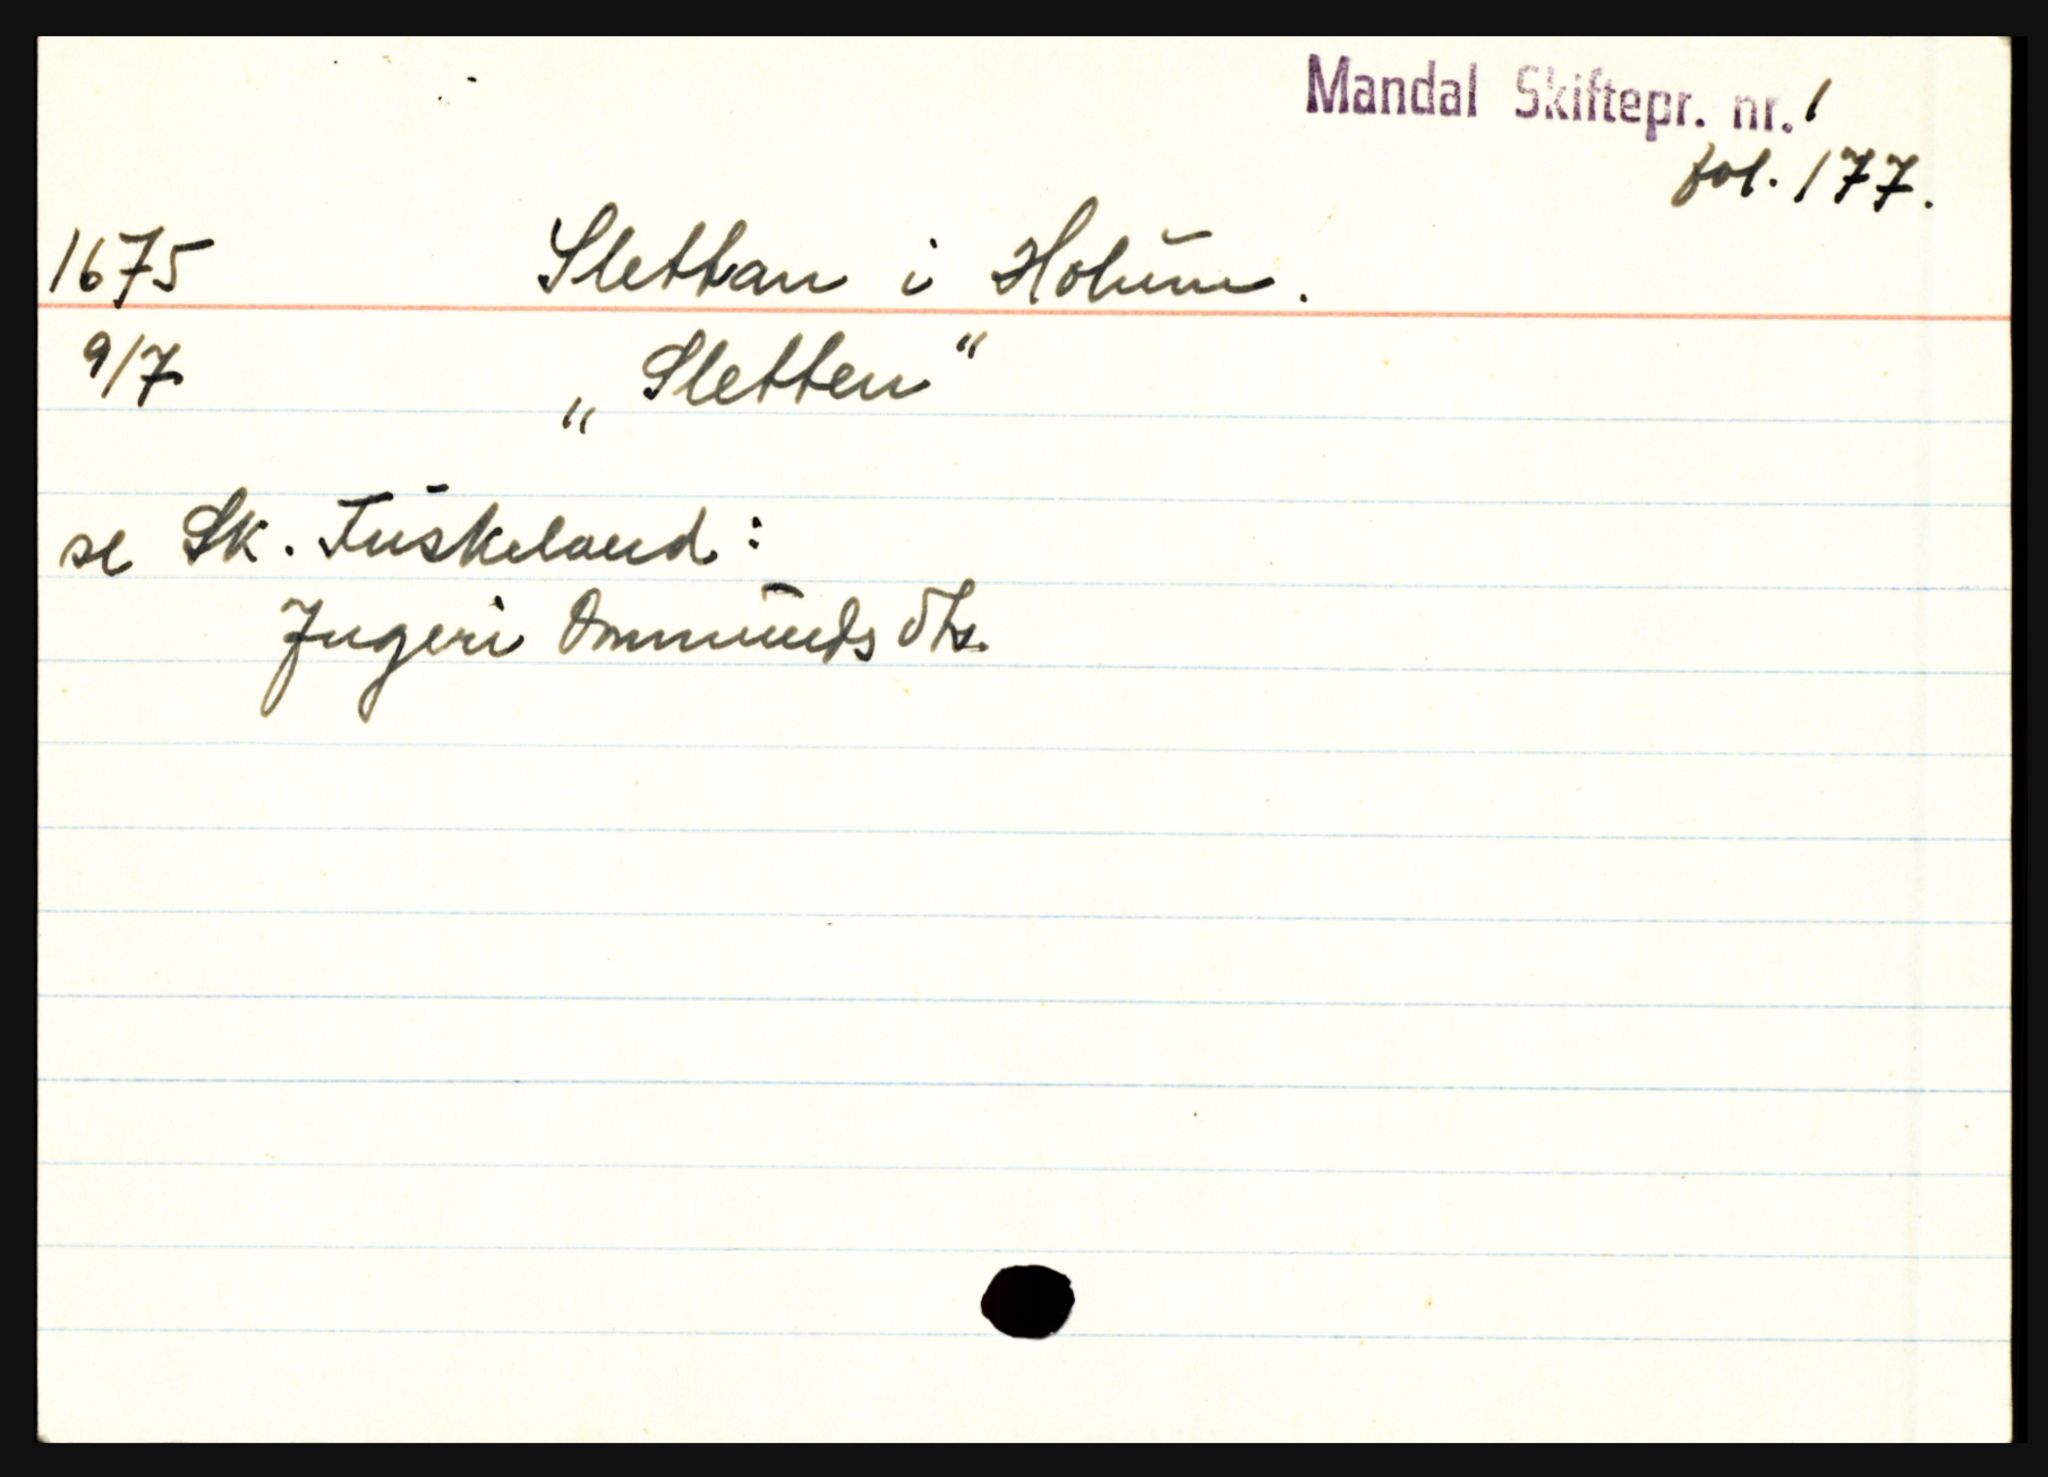 Mandal Skiftepr. nr. 1
fol. 177.
1675 Slettan i Holum.
9/7 „Sletten“
se Sk. Tuskeland:
Ingeri Ommunds dtr.